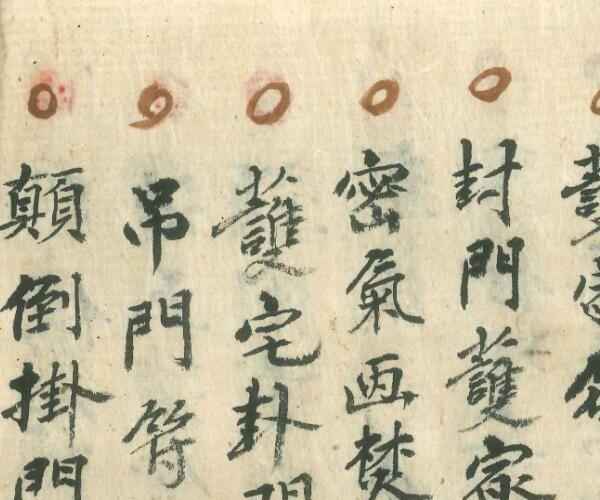 封門護家
密氣画焚
護宅卦門
吊門符
顛倒掛門